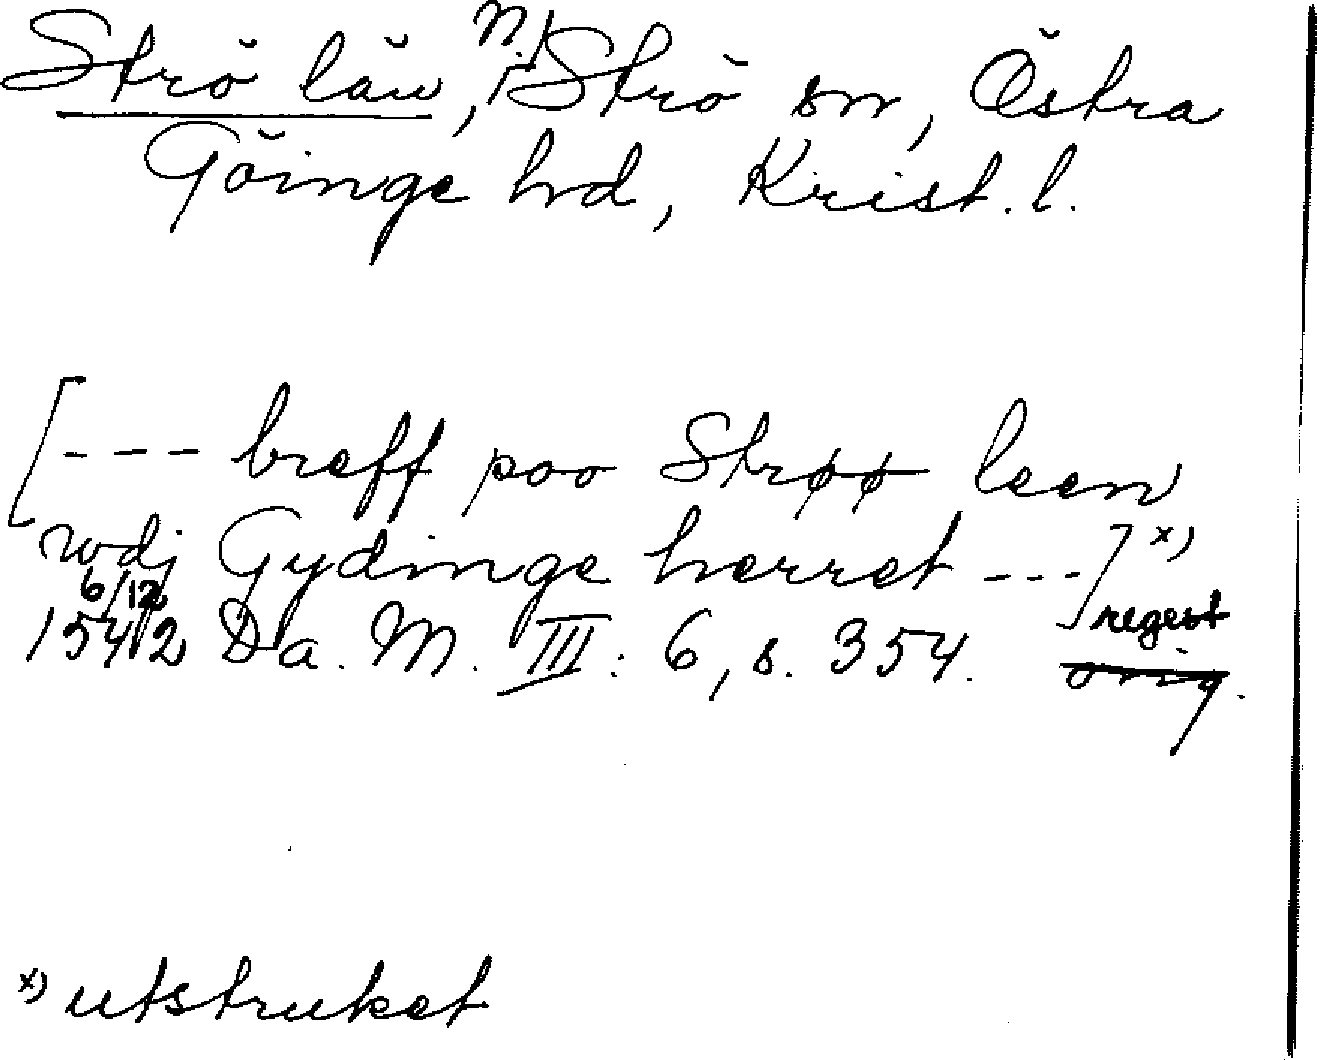 Strö län, n./Strö sn, Östra
Göinge hd, Krist. l.
[--- breff poo Strøø leen
wdj Gydinge herret ---] x)
6/12 regest
1542 Da. M. III: 6, s. 354. orig.
x) utstruket